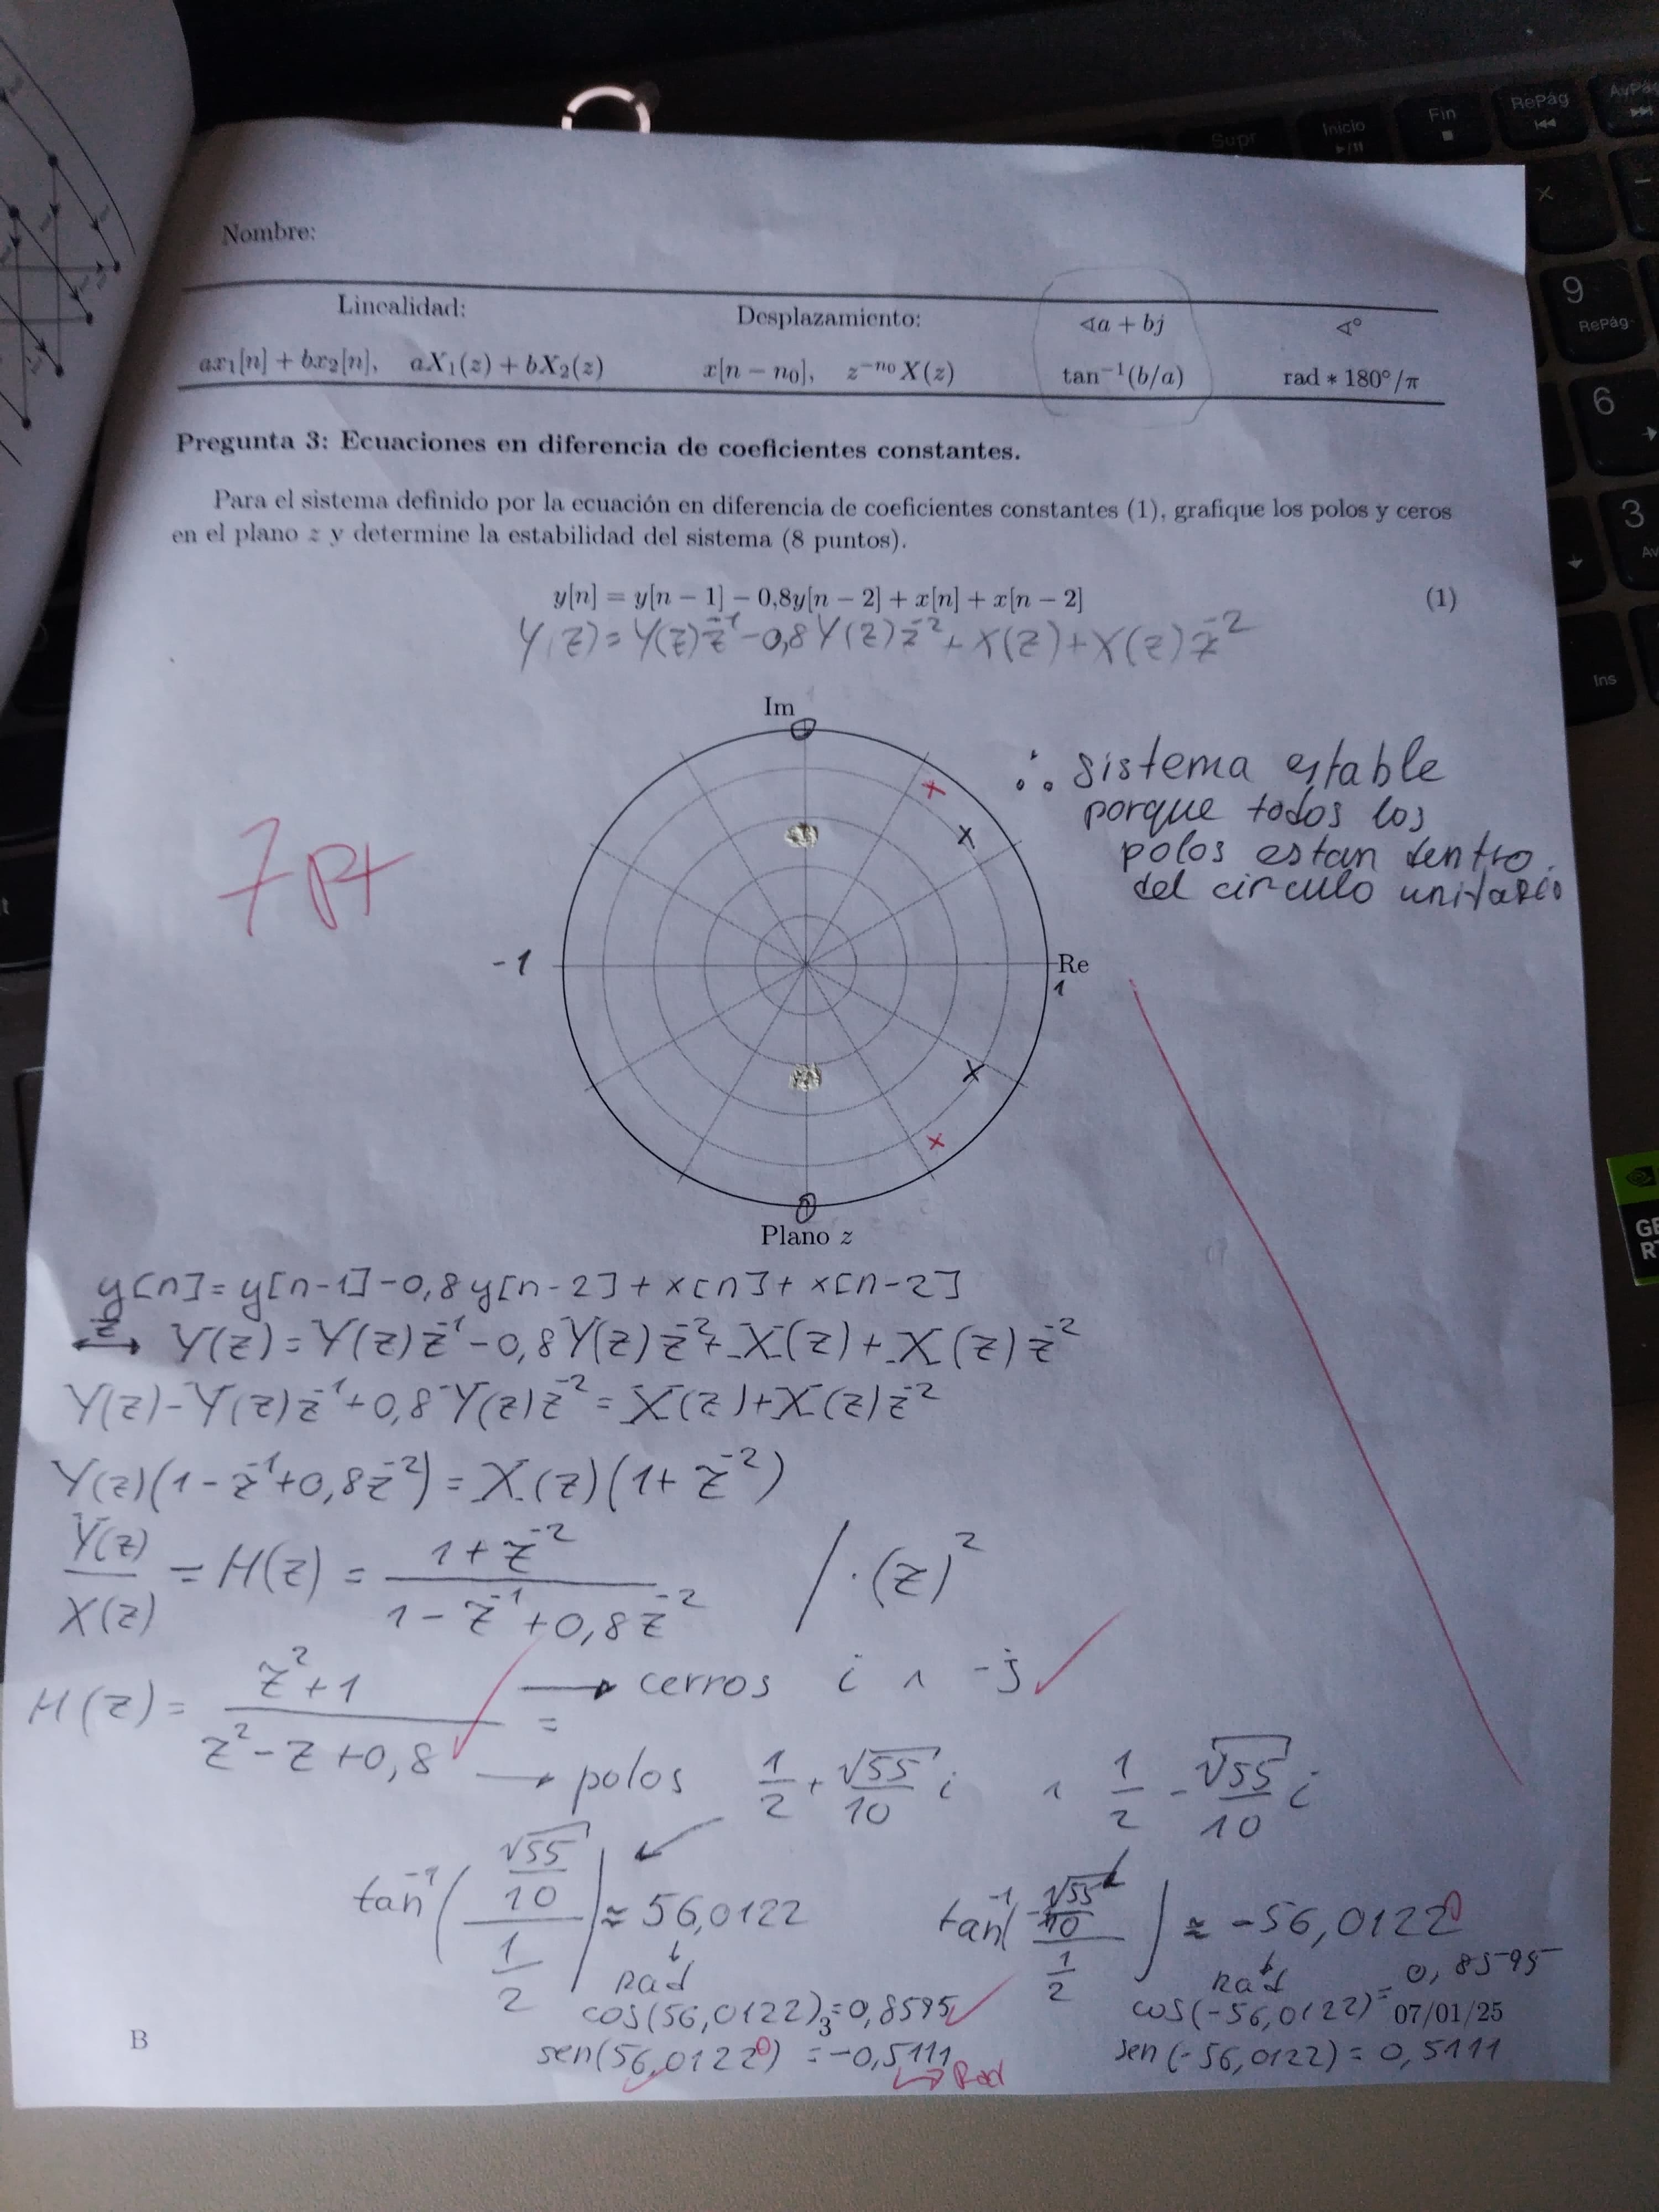 Supr
Inicio
Fin
RePág
AvPág
9
RePág
6
3
Ins
Nombre:
Linealidad: Desplazamiento: ∢a + bj ∢°
ax₁[n] + bx₂[n], aX₁(z) + bX₂(z) x[n − n₀], z⁻ⁿ⁰X(z) tan⁻¹(b/a) rad ∗ 180°/π
Pregunta 3: Ecuaciones en diferencia de coeficientes constantes.
Para el sistema definido por la ecuación en diferencia de coeficientes constantes (1), grafique los polos y ceros
en el plano z y determine la estabilidad del sistema (8 puntos).
y[n] = y[n − 1] − 0,8y[n − 2] + x[n] + x[n − 2] (1)
Y(z) = Y(z)z⁻¹ - 0,8Y(z)z⁻² + X(z) + X(z)z⁻²
Im
∴ sistema estable
porque todos los
polos estan dentro
del circulo unitario
7 pt
-1
Re
1
Plano z
y[n] = y[n-1] - 0,8y[n-2] + x[n] + x[n-2]
z ↔ Y(z) = Y(z)z⁻¹ - 0,8Y(z)z⁻² + X(z) + X(z)z⁻²
Y(z) - Y(z)z⁻¹ + 0,8Y(z)z⁻² = X(z) + X(z)z⁻²
Y(z)(1 - z⁻¹ + 0,8z⁻²) = X(z)(1 + z⁻²)
Y(z)/X(z) = H(z) = (1 + z⁻²)/(1 - z⁻¹ + 0,8z⁻²) / · (z)²
H(z) = (z² + 1)/(z² - z + 0,8) = → cerros i ∧ -j
→ polos 1/2 + √55/10 i ∧ 1/2 - √55/10 i
tan⁻¹((√55/10)/(1/2)) ≈ 56,0122 tan⁻¹((-√55/10)/(1/2)) ≈ -56,0122°
Rad Rad
cos(56,0122) = 0,8595 cos(-56,0122) = 0,8595
sen(56,0122°) = -0,5111 sen(-56,0122) = 0,5111
→ Rad
B
07/01/25